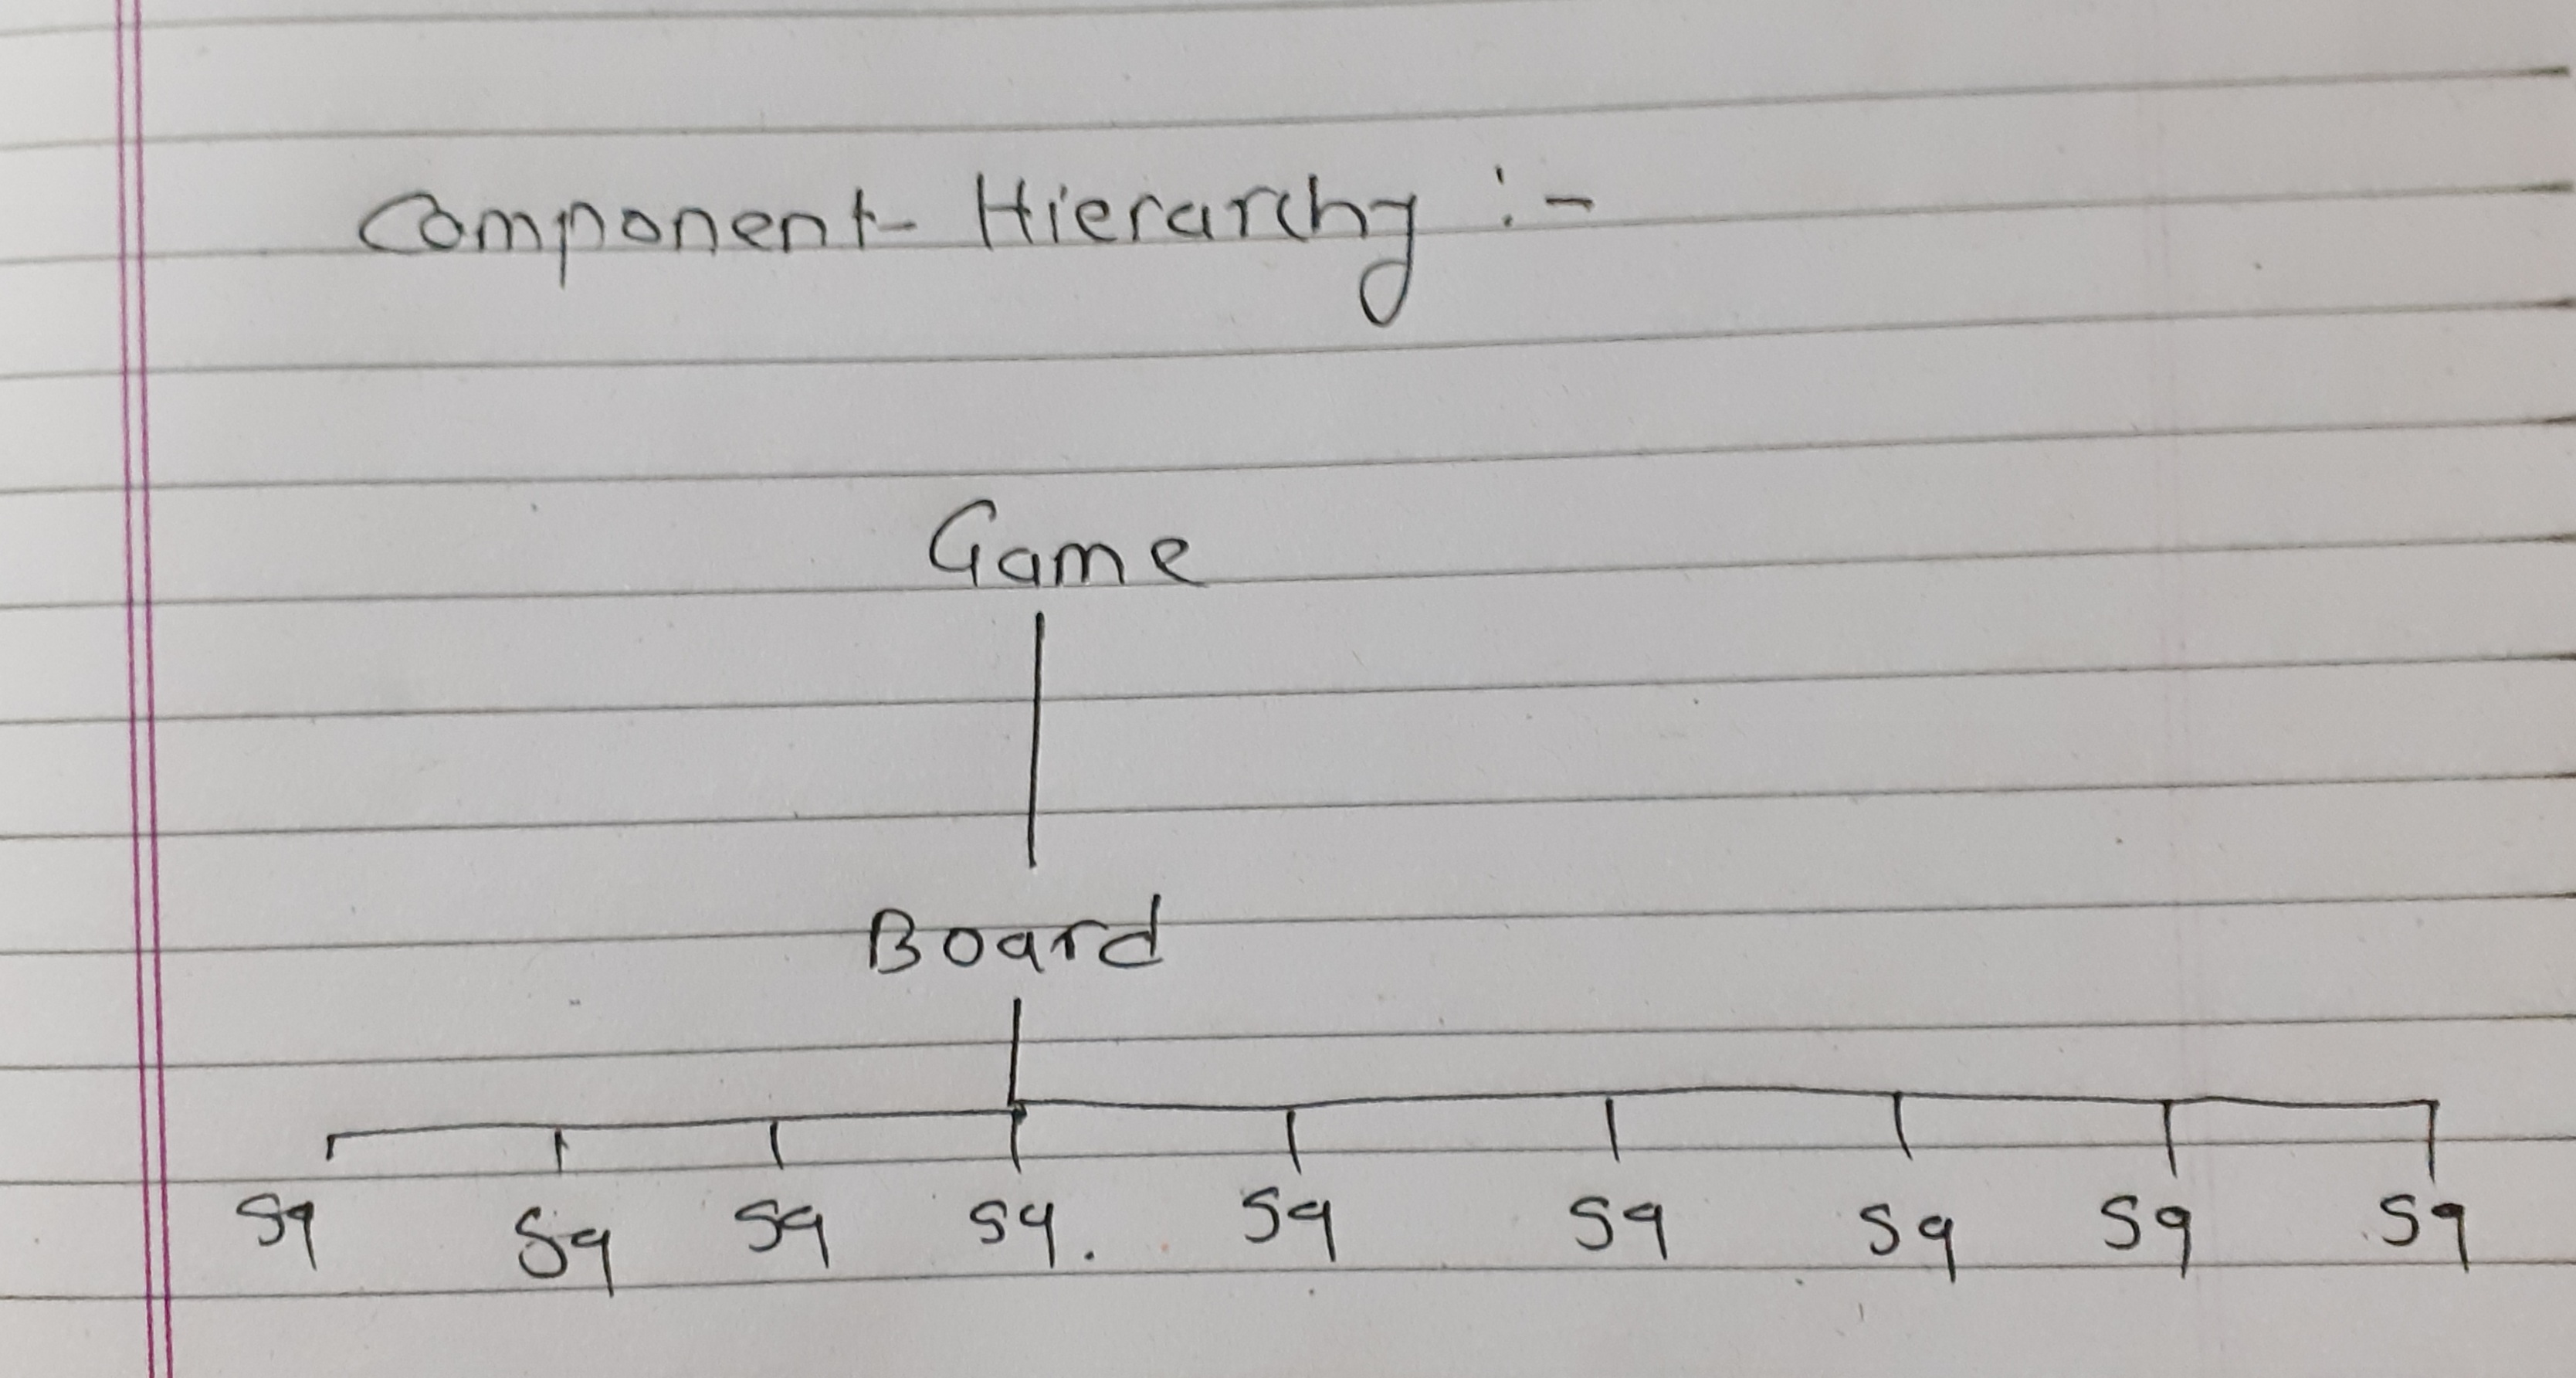 Component Hierarchy :-
Game
Board
Sq Sq Sq Sq. Sq Sq Sq Sq Sq